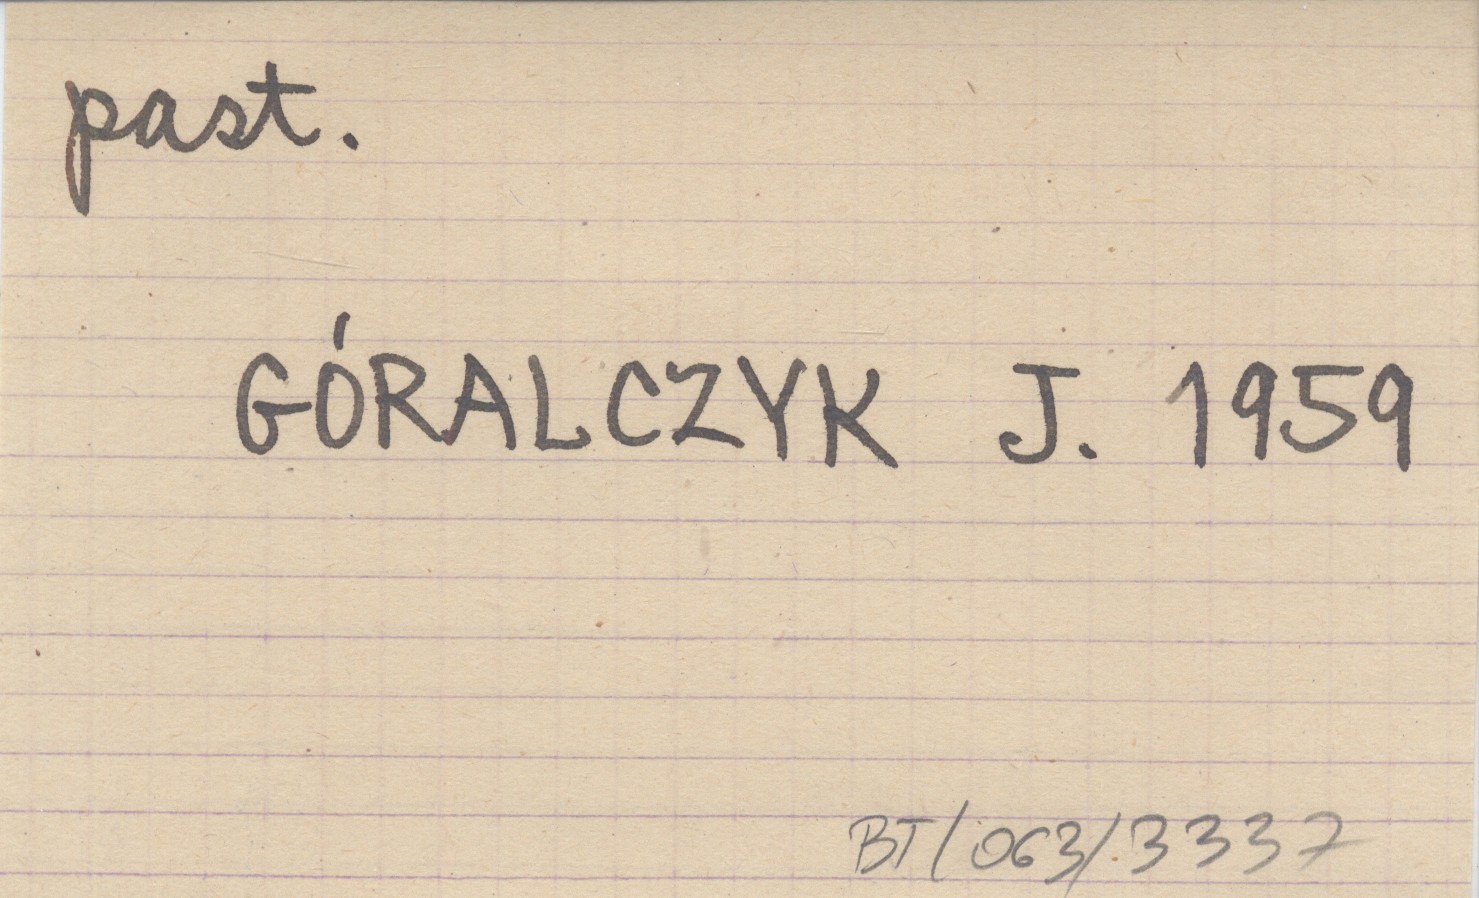 past.
GÓRALCZYK J. 1959
BT/063/3337